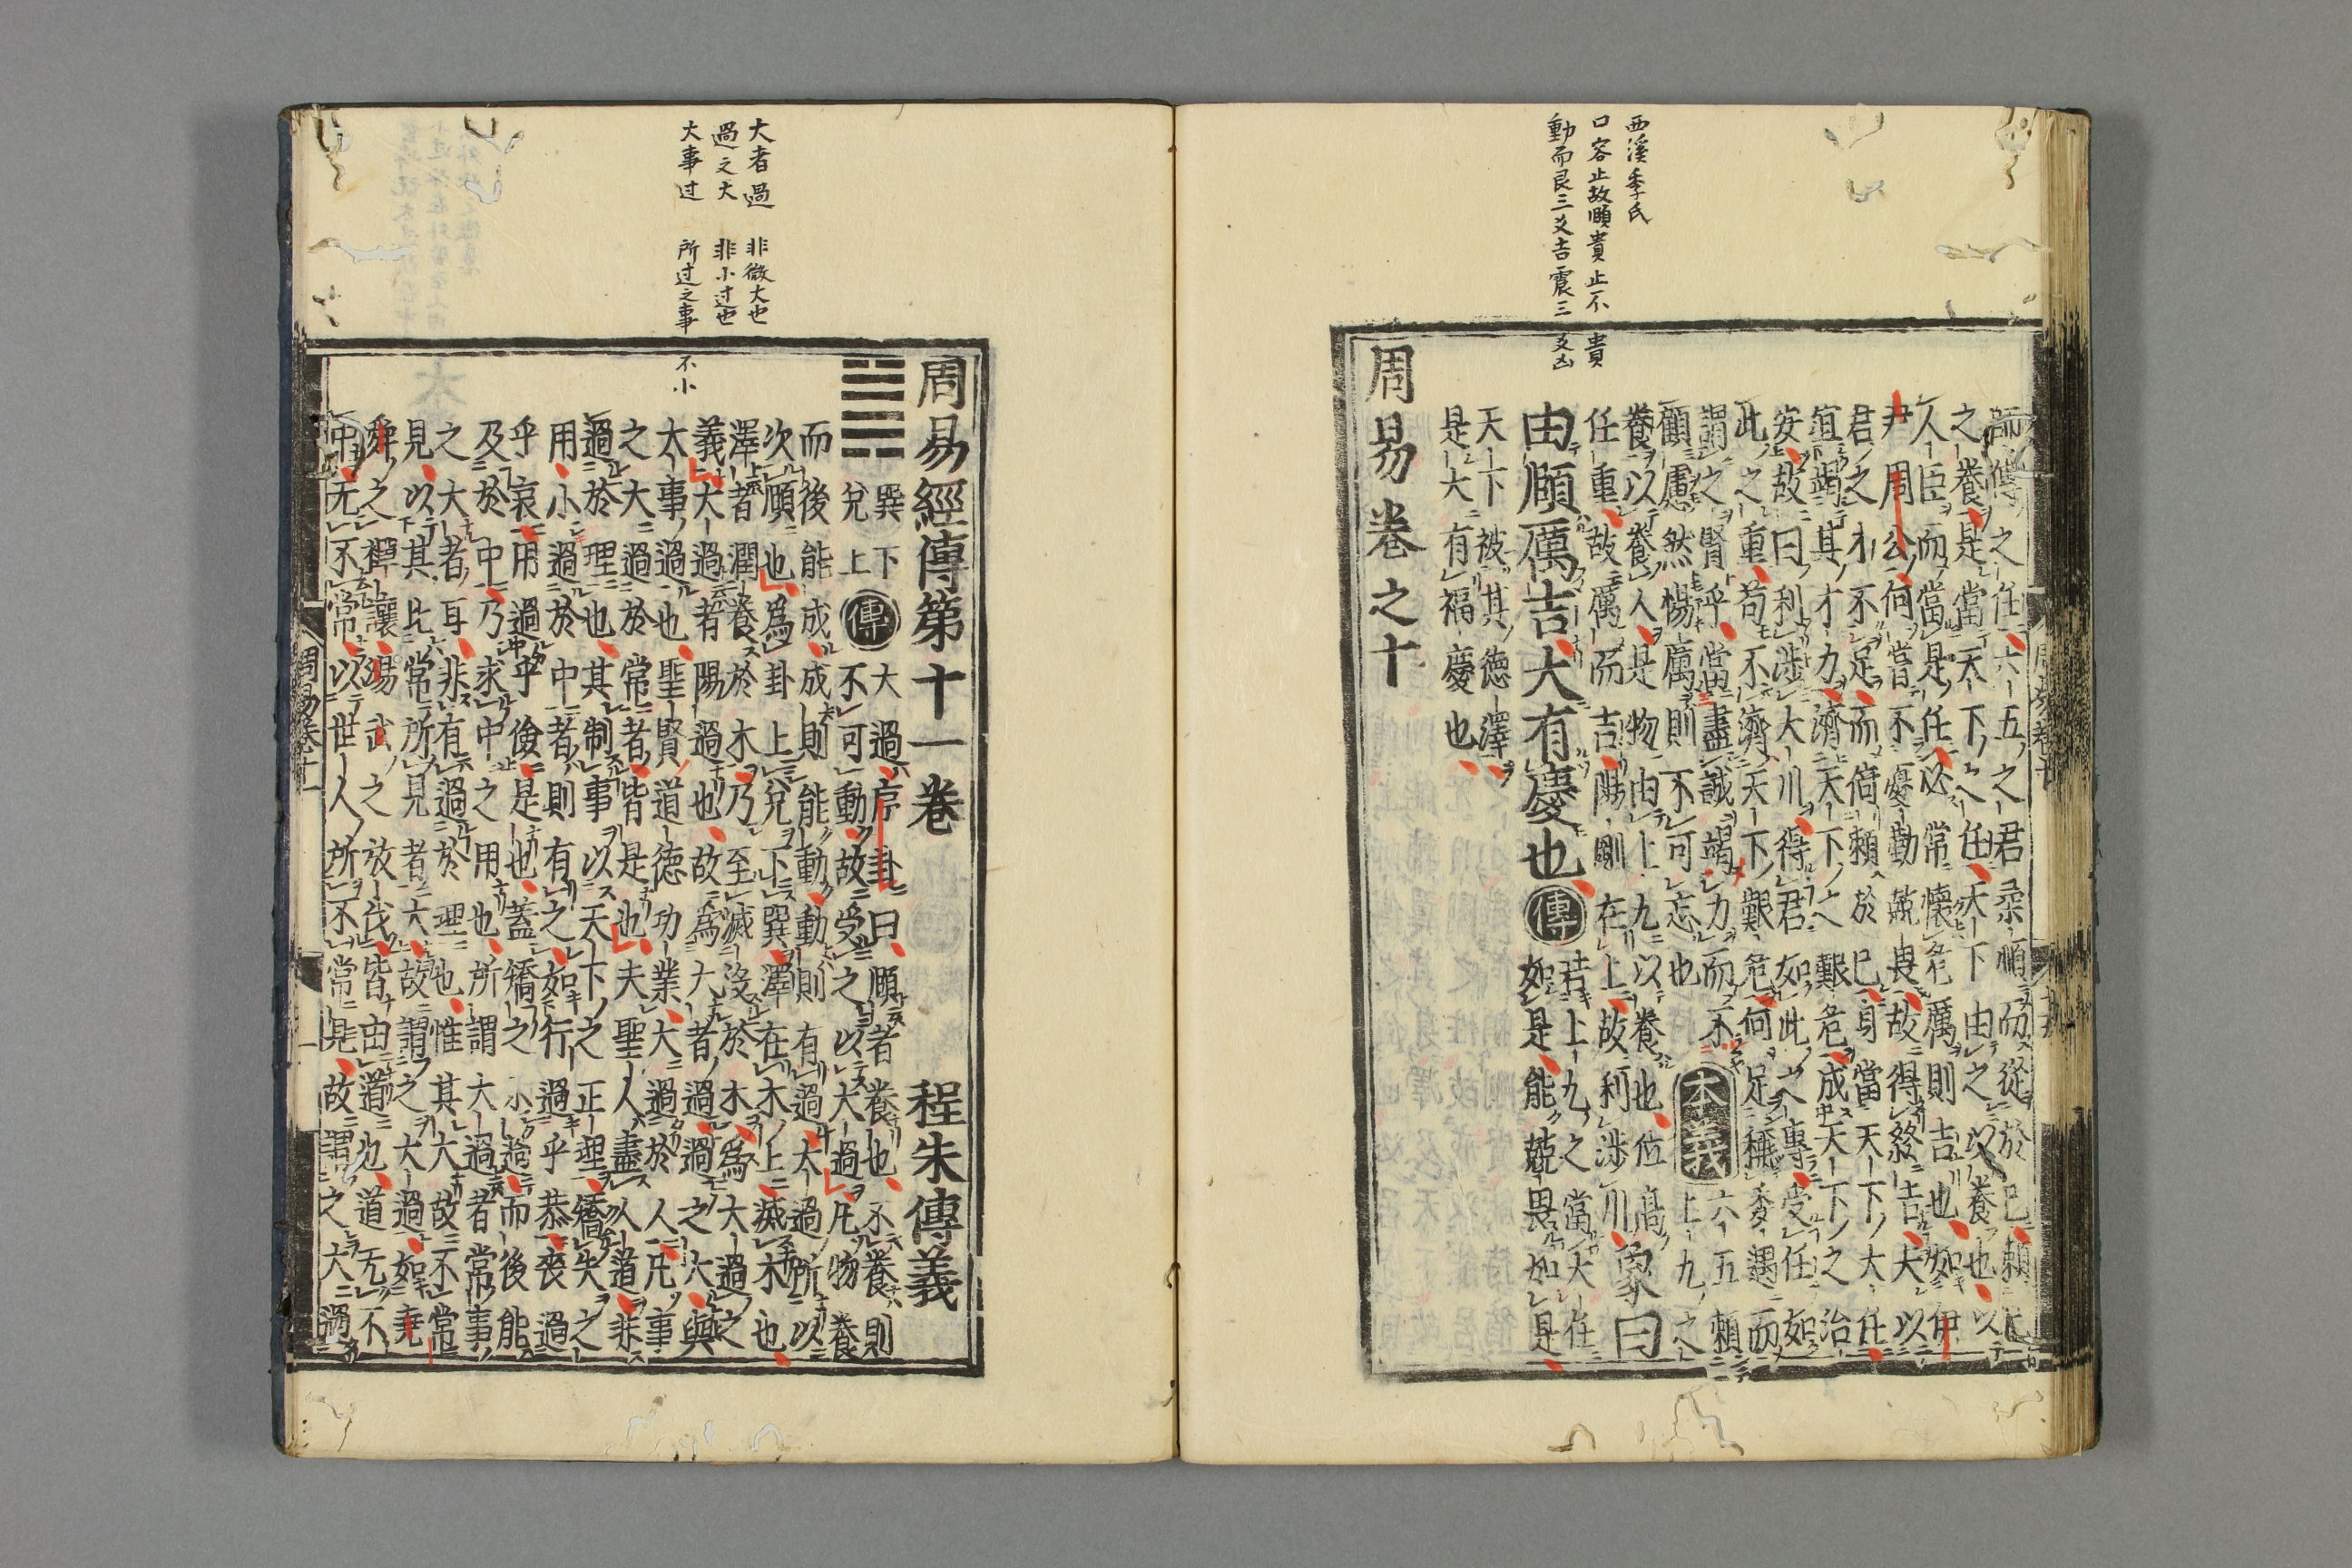 西溪李氏
口容止故頤貴止不貴
動而艮三爻吉震三爻凶
師傅之任六五之君柔順而從於已賴已
之養是當天下之任天下由之以養也以
人臣而當是任必常懷危厲則吉也如伊
尹周公何嘗不憂勤兢畏故得終吉夫以
君之才不足而倚賴於已身當天下大任
宜竭其才力濟天下之艱危成天下之治
安故曰利涉大川得君如此之專受任如
此之重苟不濟天下艱危何足稱委遇而
謂之賢乎當盡誠竭力而不
顧慮然惕厲則不可忘也
本義
六五賴上九之
養以養人是物由上九以養也位高
任重故厲而吉陽剛在上故利涉川象曰
由頤厲吉大有慶也
傳
若上九之當大任
如是能兢畏如是
天下被其德澤
是大有福慶也
周易卷之十
大者過 非微大也
過之大 非小过也
大事过 所过之事不小
周易經傳第十一卷 程朱傳義
巽下
兌上
傳
大過序卦曰頤者養也不養則
不可動故受之以大過凡物養
而後能成成則能動動則有過大過所以
次頤也爲卦上兌下巽澤在木上滅木也
澤者潤養於木乃至滅沒於木爲大過之
義大過者陽過也故爲大者過過之大與
大事過也聖賢道德功業大過於人凡事
之大過於常者皆是也夫聖人盡人道非
過於理也其制事以天下之正理矯失之
用小過於中者則有之如行過乎恭喪過
乎哀用過乎儉是也蓋矯之小過而後能
及於中乃求中之用也所謂大過者常事
之大者耳非有過於理也惟其大故不常
見以其比常所見者大故謂之大過如堯
舜之禪讓湯武之放伐皆由道也道无不
中无不常以世人所不常見故謂之大過